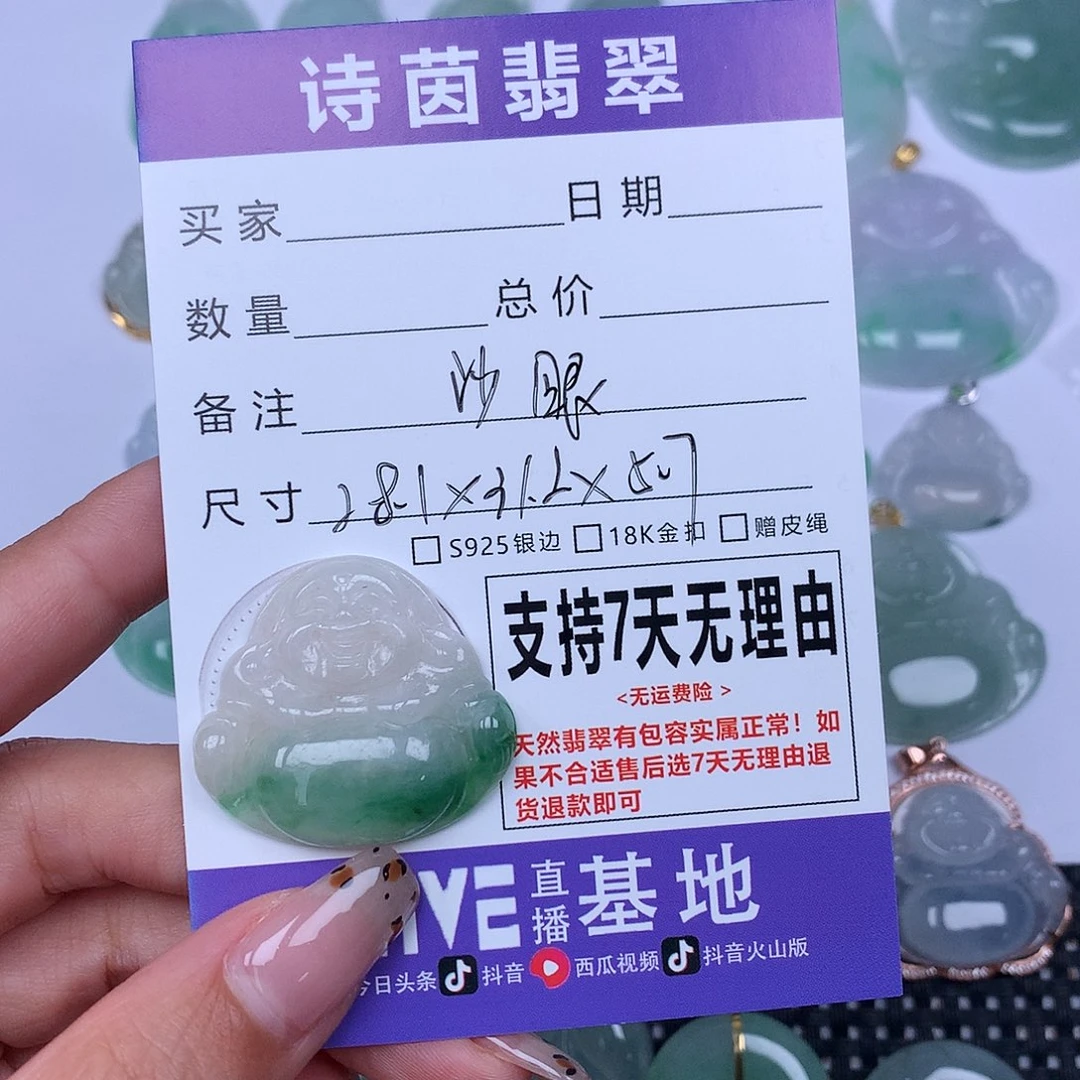 诗茵翡翠
买家 日期
数量 总价
备注 沙眼
尺寸 28.1×31.2×5.7
□S925银边 □18K金扣 □赠皮绳
支持7天无理由
<无运费险>
天然翡翠有包容实属正常！如
果不合适售后选7天无理由退
货退款即可
直播基地
今日头条 抖音 西瓜视频 抖音火山版